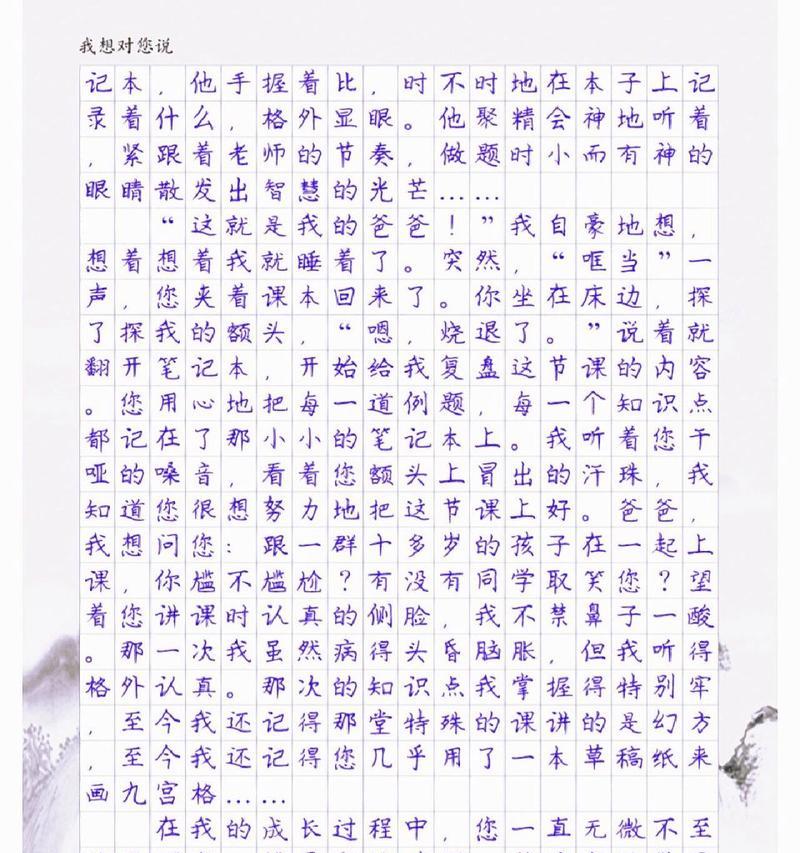 我想对您说
记本，他手握着比，时不时地在本子上记
录着什么，格外显眼。他聚精会神地听着
，紧跟着老师的节奏，做题时小而有神的
眼睛散发出智慧的光芒……
“这就是我的爸爸！”我自豪地想，
想着想着我就睡着了。突然，“哐当”一
声，您夹着课本回来了。你坐在床边，探
了探我的额头，“嗯，烧退了。”说着就
翻开笔记本，开始给我复盘这节课的内容
。您用心地把每一道例题，每一个知识点
都记在了那小小的笔记本上。我听着您干
哑的嗓音，看着您额头上冒出的汗珠，我
知道您很想努力地把这节课上好。爸爸，
我想问您：跟一群十多岁的孩子在一起上
课，你尴不尴尬？有没有同学取笑您？望
着您讲课时认真的侧脸，我不禁鼻子一酸
。那一次我虽然病得头昏脑胀，但我听得
格外认真。那次的知识点我掌握得特别牢
，至今我还记得那堂特殊的课讲的是幻方
，至今我还记得您几乎用了一本草稿纸来
画九宫格……
在我的成长过程中，您一直无微不至